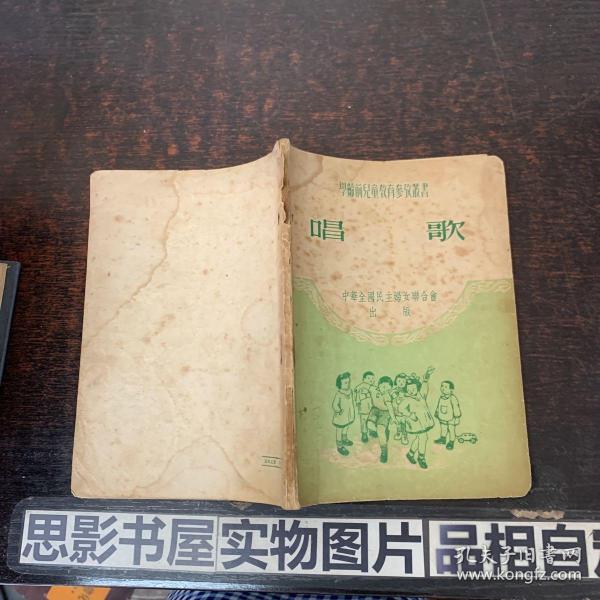 學齡前兒童教育參攷叢書
唱歌
中華全國民主婦女聯合會
出版
思影书屋 实物图片 品相自定
孔夫子旧书网
www.kongfz.com